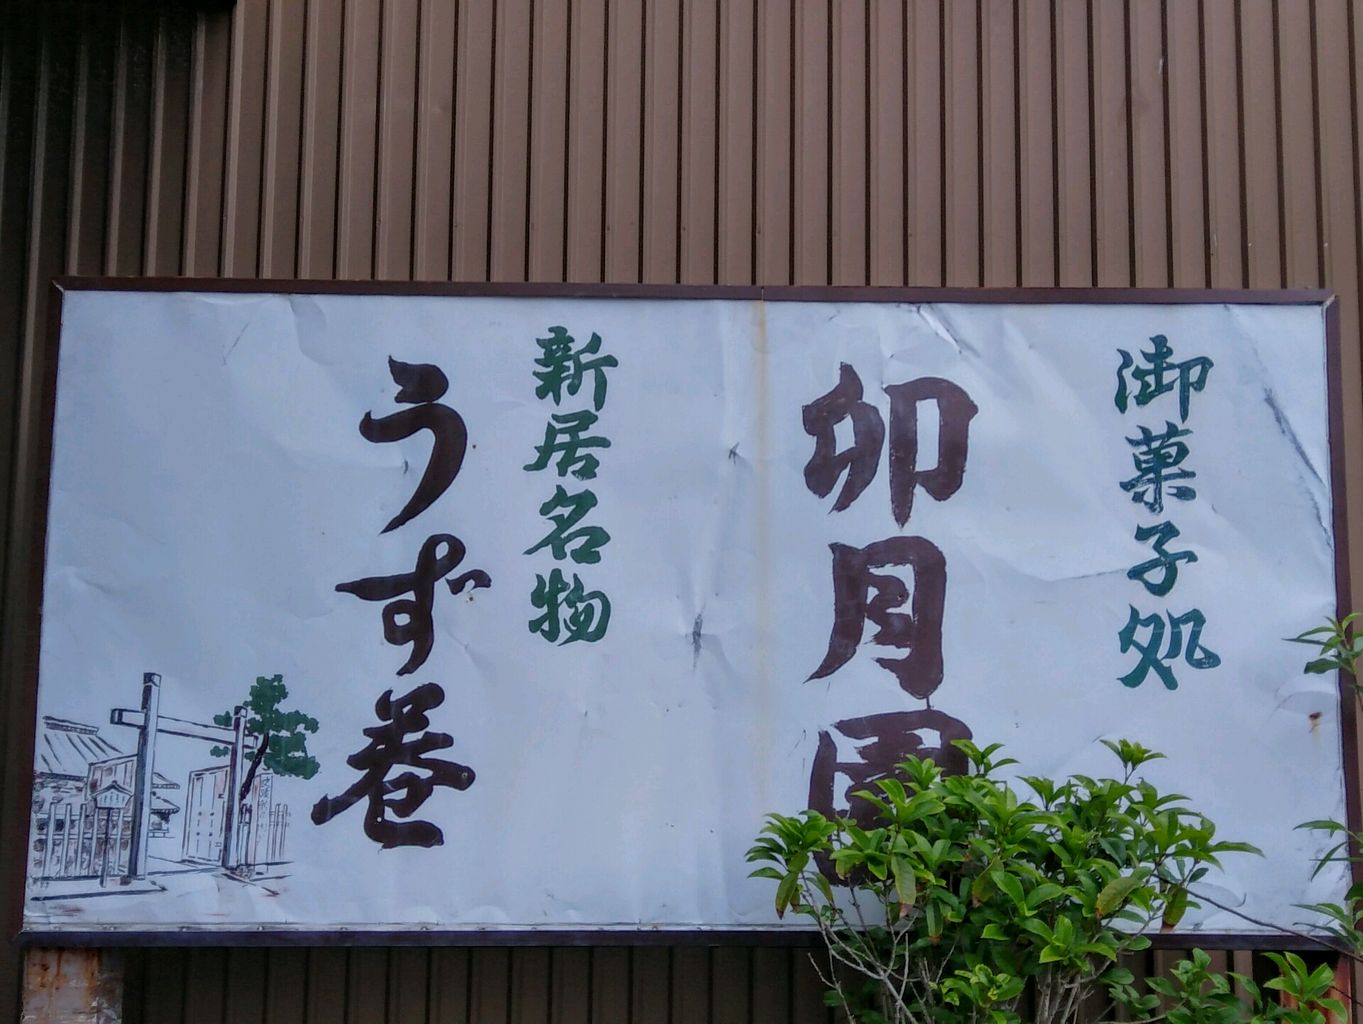 御菓子処
卯月園
新居名物
うず巻